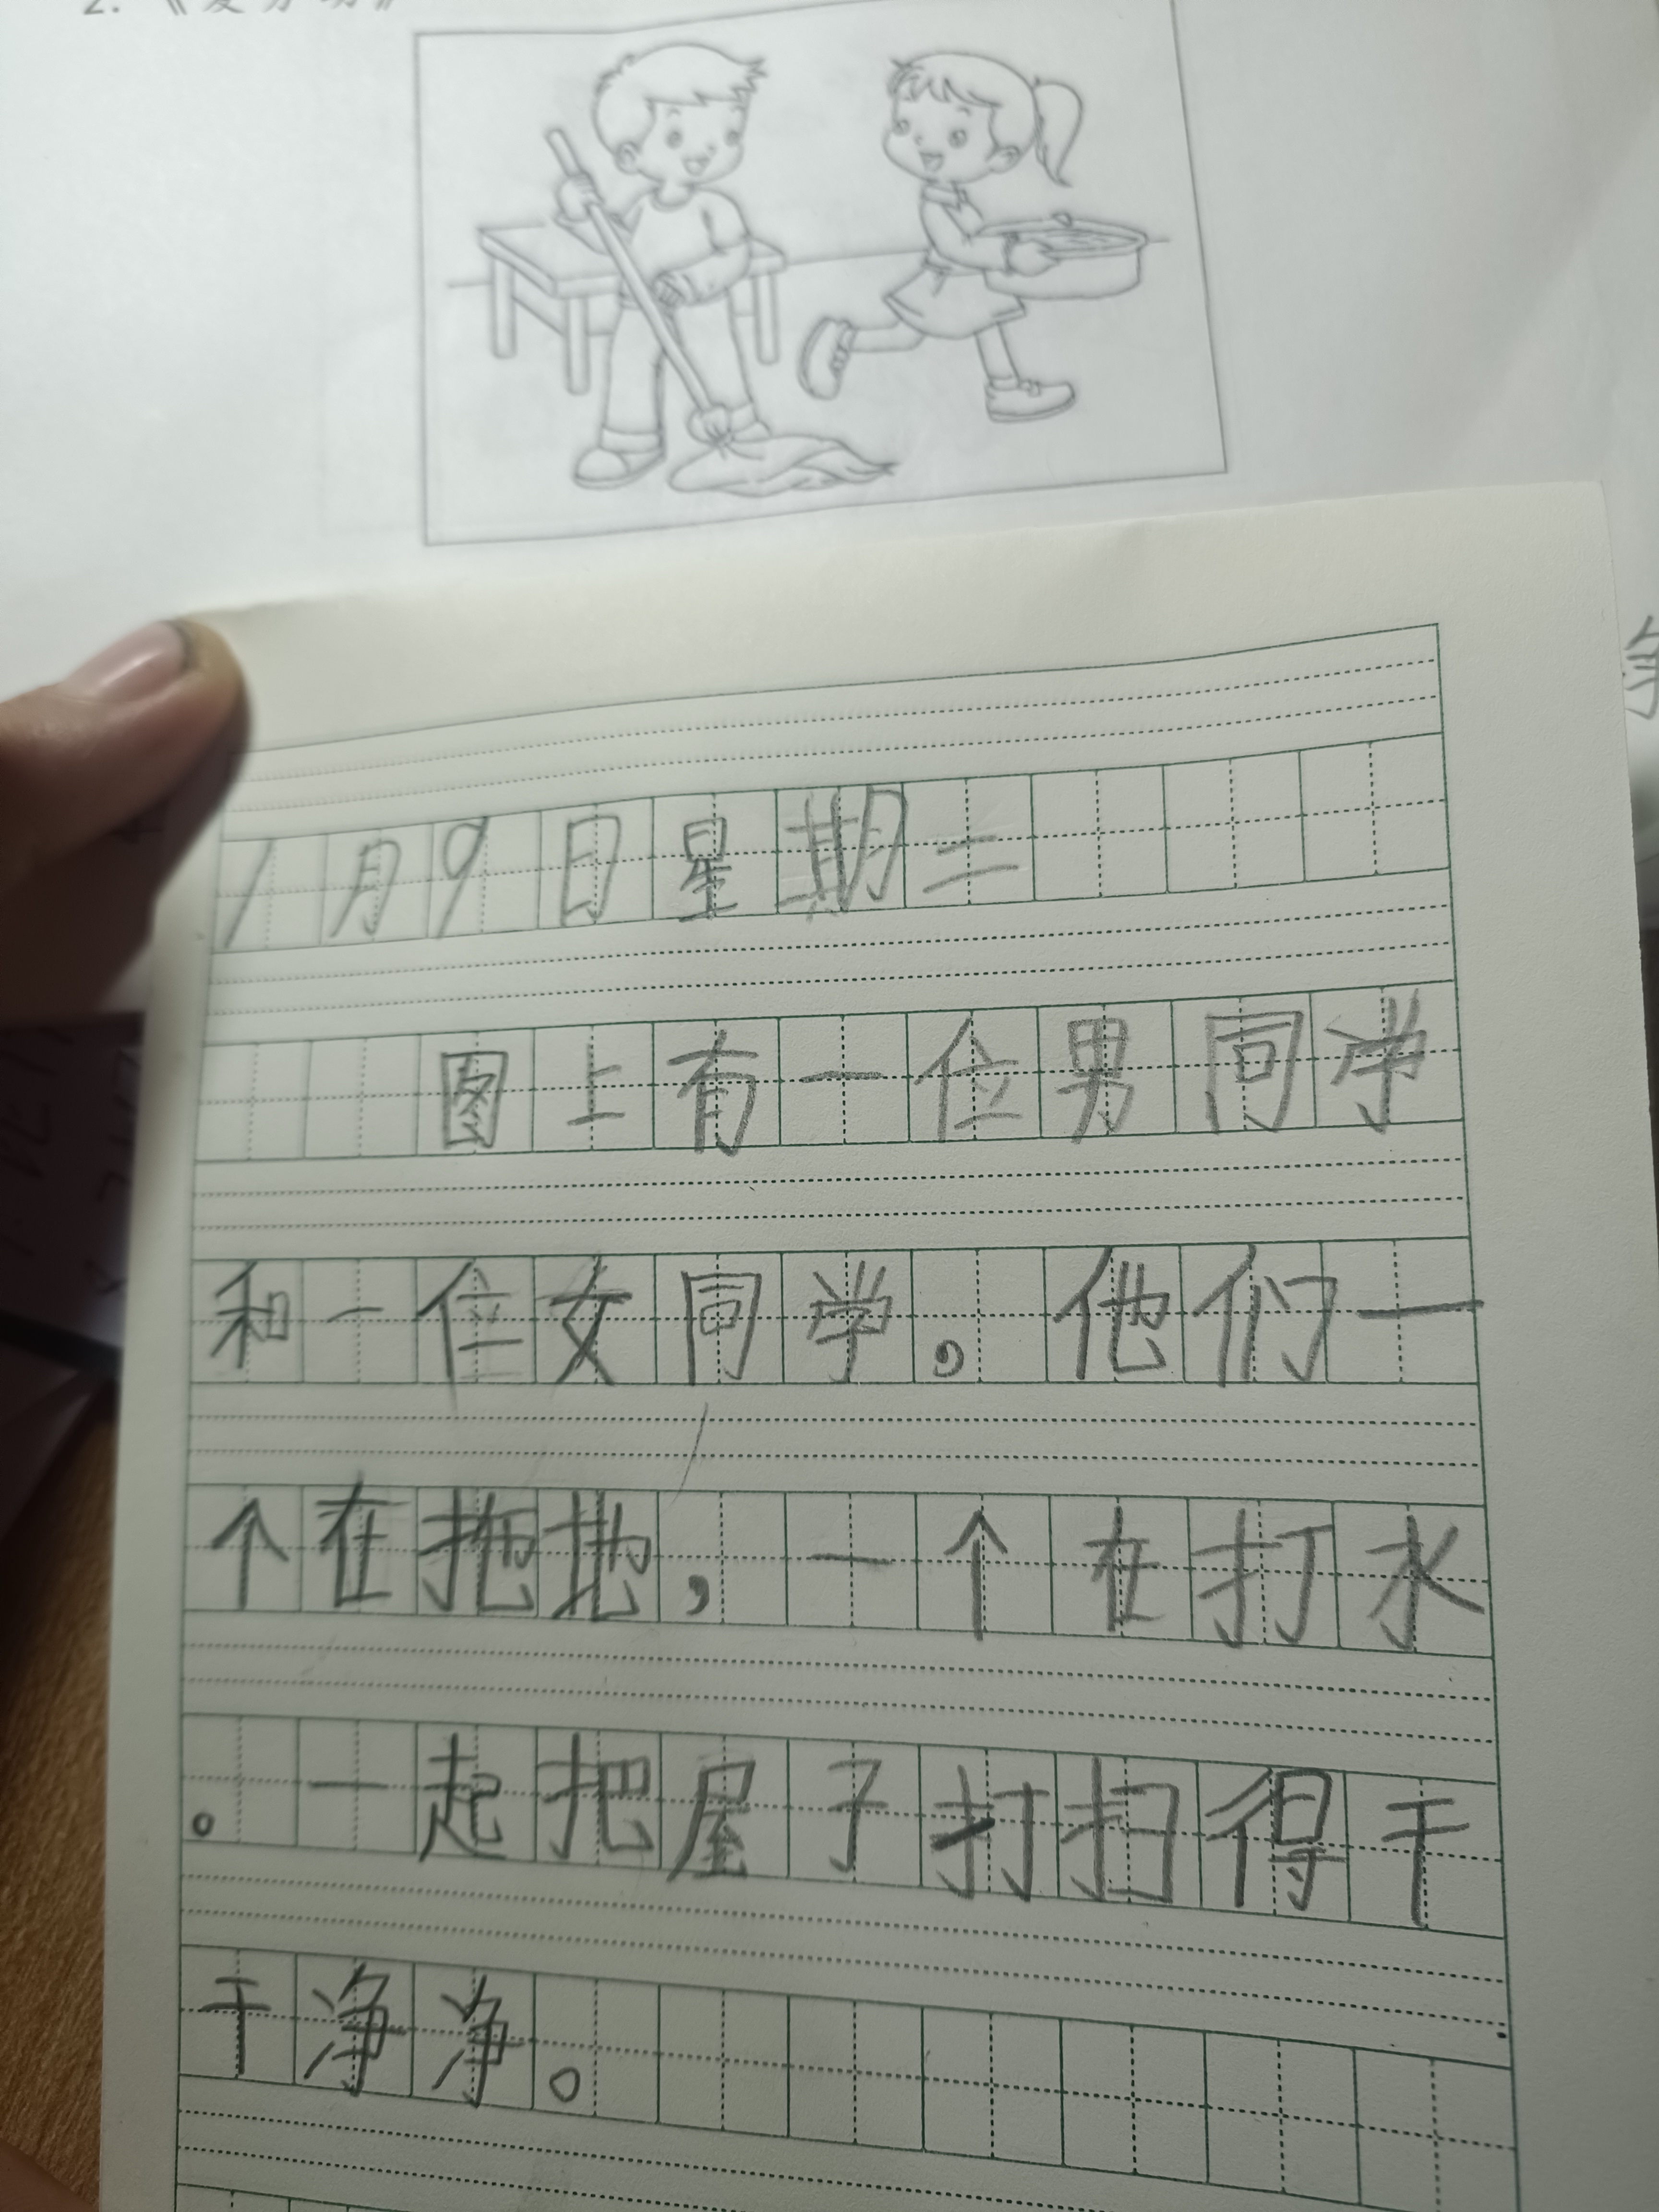 2.《爱劳动》
1月9日星期二
图上有一位男同学
和一位女同学。他们一
个在拖地，一个在打水
。一起把屋子打扫得干
干净净。